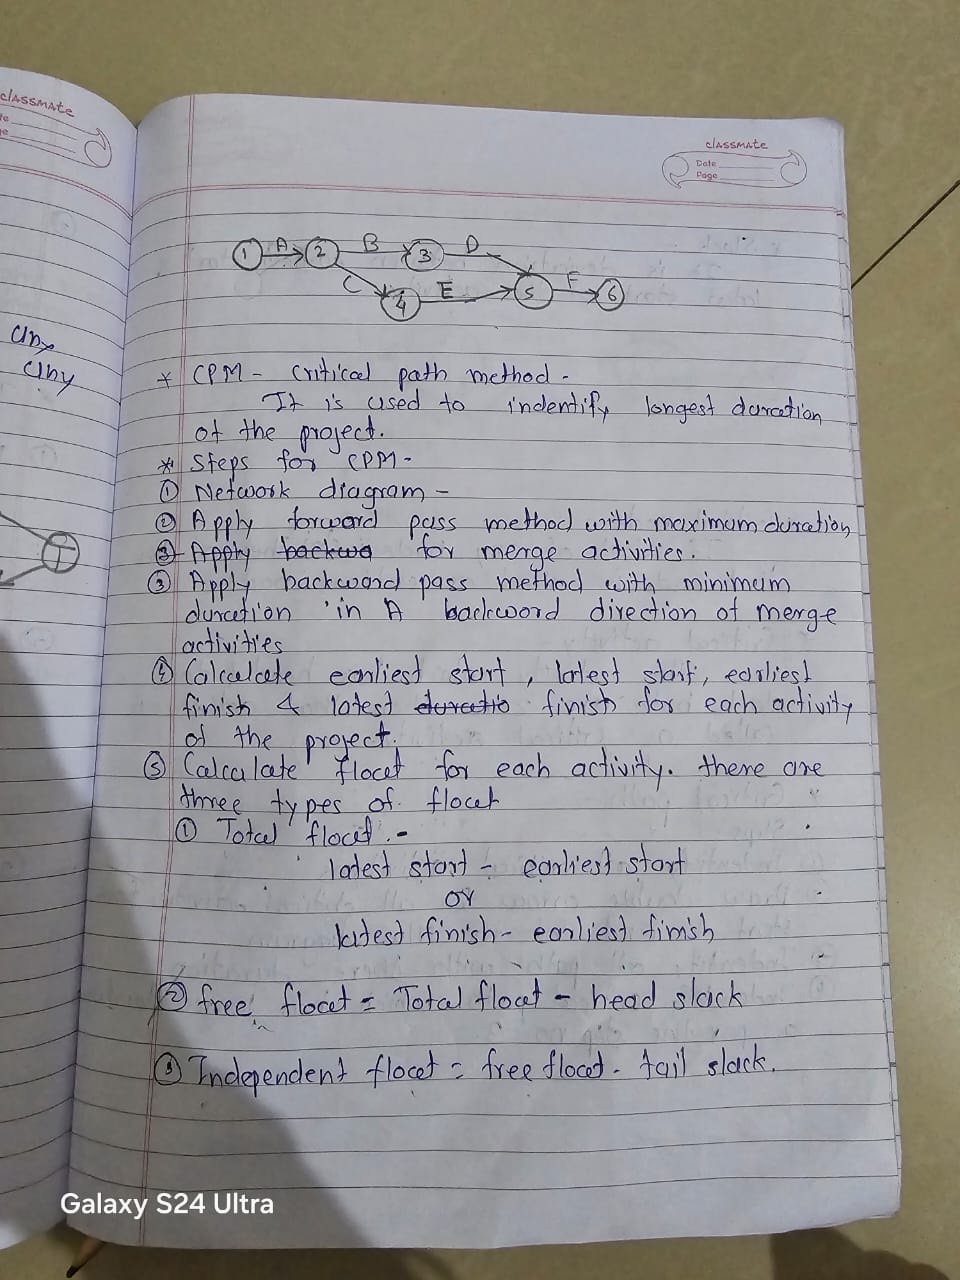 classmate
classmate
Date
Page
1 A 2 B 3 D
C 4 E 5 F 6
any
any
* CPM - Critical path method -
It is used to indentify longest duration
of the project.
* Steps for CPM -
① Network diagram -
② Apply forword pass method with maximum duration
③ Apply backwa for merge activities.
③ Apply backword pass method with minimum
duration in A backword direction of merge
activities
④ Calculate earliest start, latest start, earliest
finish & latest duratio finish for each activity
of the project.
⑤ Calculate float for each activity. there are
three types of float
① Total float . -
latest start - earliest start
or
latest finish - earliest finish
② free float = Total float - head slack
③ Independent float = free float - tail slack.
Galaxy S24 Ultra